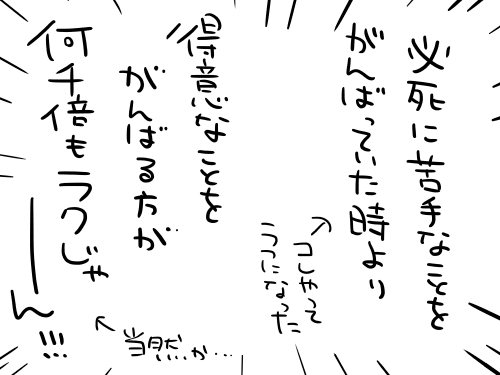 必死に苦手なことを
がんばっていた時より
↗コレやって
うつになった
得意なことを
がんばる方が
何千倍もラクじゃ
ーーん!!!
←当然か…